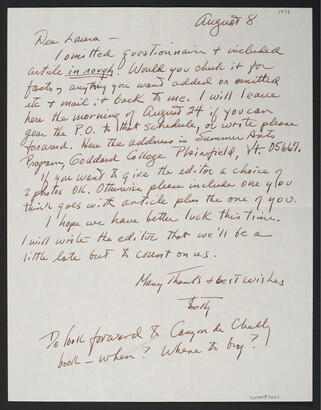 1978
August 8
Dear Laura —
I omitted questionnaire & included
article in rough. Would you check it for
facts, anything you want added or omitted
etc & mail it back to me. I will leave
here the morning of August 24 if you can
gear the P.O. to that schedule, or write please
forward. Here the address is Summer Arts
Program, Goddard College Plainfield, Vt 05667.
If you want to give the editor a choice of
2 photos OK. Otherwise please include one you
think goes with article plus the one of you.
I hope we have better luck this time.
I will write the editor that we'll be a
little late but to count on us.
Many Thanks & best wishes
To look forward to Canyon de Chelly
book — when? Where to buy?
THOMPSON